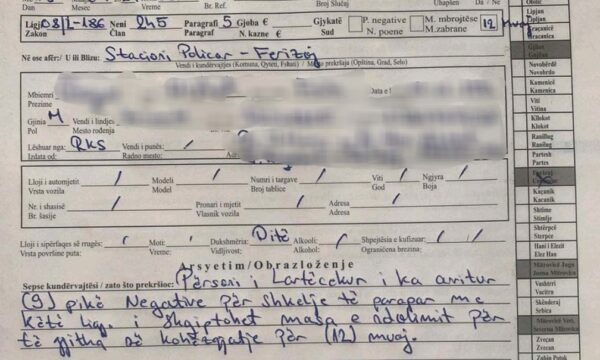 Dan Muaj Vit Vreme Br. Ref Broj Slučaj Uhapšen Da / Ne
Ligji 08/L-186 Neni 245 Paragrafi 5 Gjoba € Gjykatë P. negative M. mbrojtëse 12 muaj
Zakon Član Paragraf N. kazne € Sud N. poene M. zabrane
Në ose afër:/ U ili Blizu: Stacioni Policor - Ferizaj
Vendi i kundërvajtjes (Komuna, Qyteti, Fshati) / Mesto prekršaja (Opština, Grad, Selo)
Mbiemri Data e l
Prezime
Gjinia M Vendi i lindjes
Pol Mesto rođenja
Lëshuar nga: RKS Vendi i punës:
Izdata od: Radno mesto:
Lloji i automjetit / Modeli / Numri i targave / Viti / Ngjyra /
Vrsta vozila Model Broj tablice God Boja
Nr. i shasisë / Pronari i mjetit / Adresa /
Br. šasije Vlasnik vozila Adresa
Lloji i sipërfaqes së rrugës: / Moti: / Dukshmëria: Ditë Alkooli: / Shpejtësia e kufizuar: /
Vrsta površine puta: Vreme: Vidljivost: Alkohol: Ograničena brzina:
Arsyetim/Obrazloženje
Sepse kundërvajtësi / zato što prekršioc: Përsoni i Lartëcekur i ka arritur
(9) pikë Negative për shkelje të parapar me
këtë ligj i shqiptohet masa e ndalimit për
të gjitha në kohëzgjatje për (12) muaj.
Obilic
Lipjan
Lipljan
Graçanicë
Gracanica
Gjilan
Novobërdë
Novobrdo
Kamenicë
Kamenica
Viti
Vitina
Kllokot
Klokot
Ranillug
Ranilug
Partesh
Partes
Ferizaj
Kaçanik
Kačanik
Shtime
Stimlje
Shtërpcë
Sterpce
Hani i Elezit
Elez Han
Mitrovicë Jugu
Juzna Mitrovica
Vushtrri
Vucitrn
Skënderaj
Srbica
Mitrovicë Veri,
Severna Mitrovica
Zveçan
Zvecan
Zubin Potok